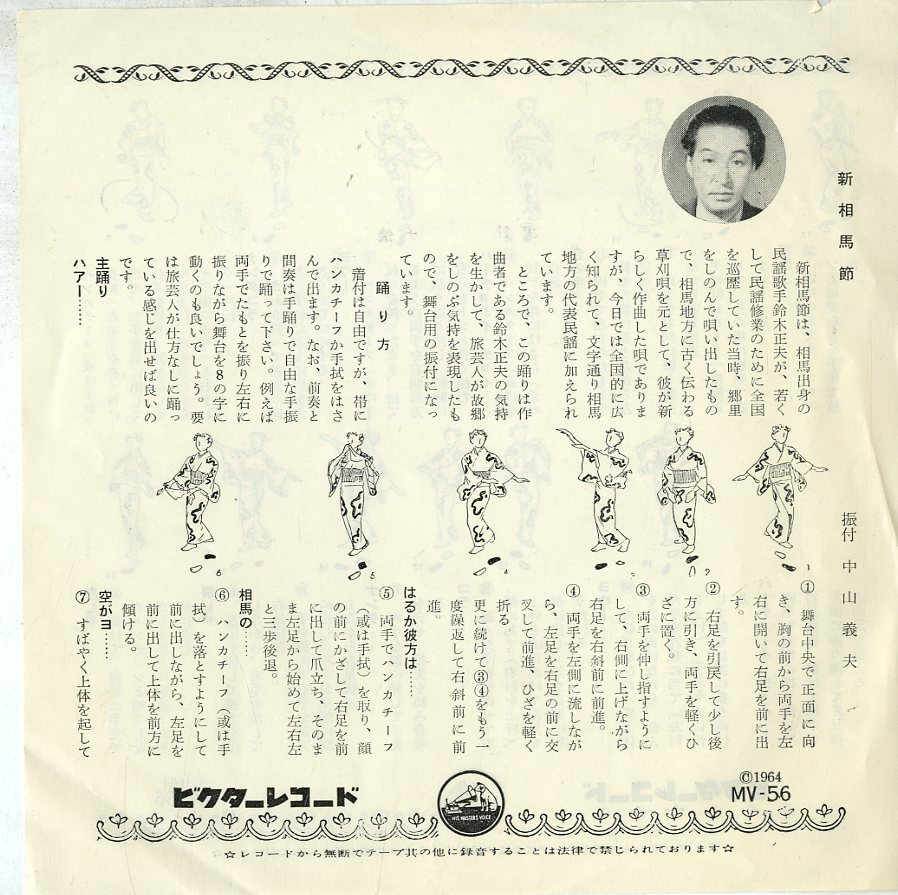 新相馬節
振付 中山義夫
新相馬節は、相馬出身の
民謡歌手鈴木正夫が、若く
して民謡修業のために全国
を巡歴していた当時、郷里
をしのんで唄い出したもの
で、相馬地方に古く伝わる
草刈唄を元として、彼が新
らしく作曲した唄でありま
すが、今日では全国的に広
く知られて、文字通り相馬
地方の代表民謡に加えられ
ています。
ところで、この踊りは作
曲者である鈴木正夫の気持
を生かして、旅芸人が故郷
をしのぶ気持を表現したも
ので、舞台用の振付になっ
ています。
踊り方
着付は自由ですが、帯に
ハンカチーフか手拭をはさ
んで出ます。なお、前奏と
間奏は手踊りで自由な手振
りで踊って下さい。例えば
両手でたもとを振り左右に
振りながら舞台を8の字に
動くのも良いでしょう。要
は旅芸人が仕方なしに踊っ
ている感じを出せば良いの
です。
主踊り
ハアー……
① 舞台中央で正面に向
き、胸の前から両手を左
右に開いて右足を前に出
す。
② 右足を引戻して少し後
方に引き、両手を軽くひ
ざに置く。
③ 両手を伸し指すように
して、右側に上げながら
右足を右斜前に前進。
④ 両手を左側に流しなが
ら、左足を右足の前に交
叉して前進、ひざを軽く
折る。
更に続けて③④をもう一
度繰返して右斜前に前
進。
はるか彼方は……
⑤ 両手でハンカチーフ
(或は手拭)を取り、顔
の前にかざして右足を前
に出して爪立ち、そのま
ま左足から始めて左右左
と三歩後退。
相馬の……
⑥ ハンカチーフ(或は手
拭)を落とすようにして
前に出しながら、左足を
前に出して上体を前方に
傾ける。
空がヨ……
⑦ すばやく上体を起して
©1964
MV-56
HIS MASTER'S VOICE
ビクターレコード
☆レコードから無断でテープ其の他に録音することは法律で禁じられております☆